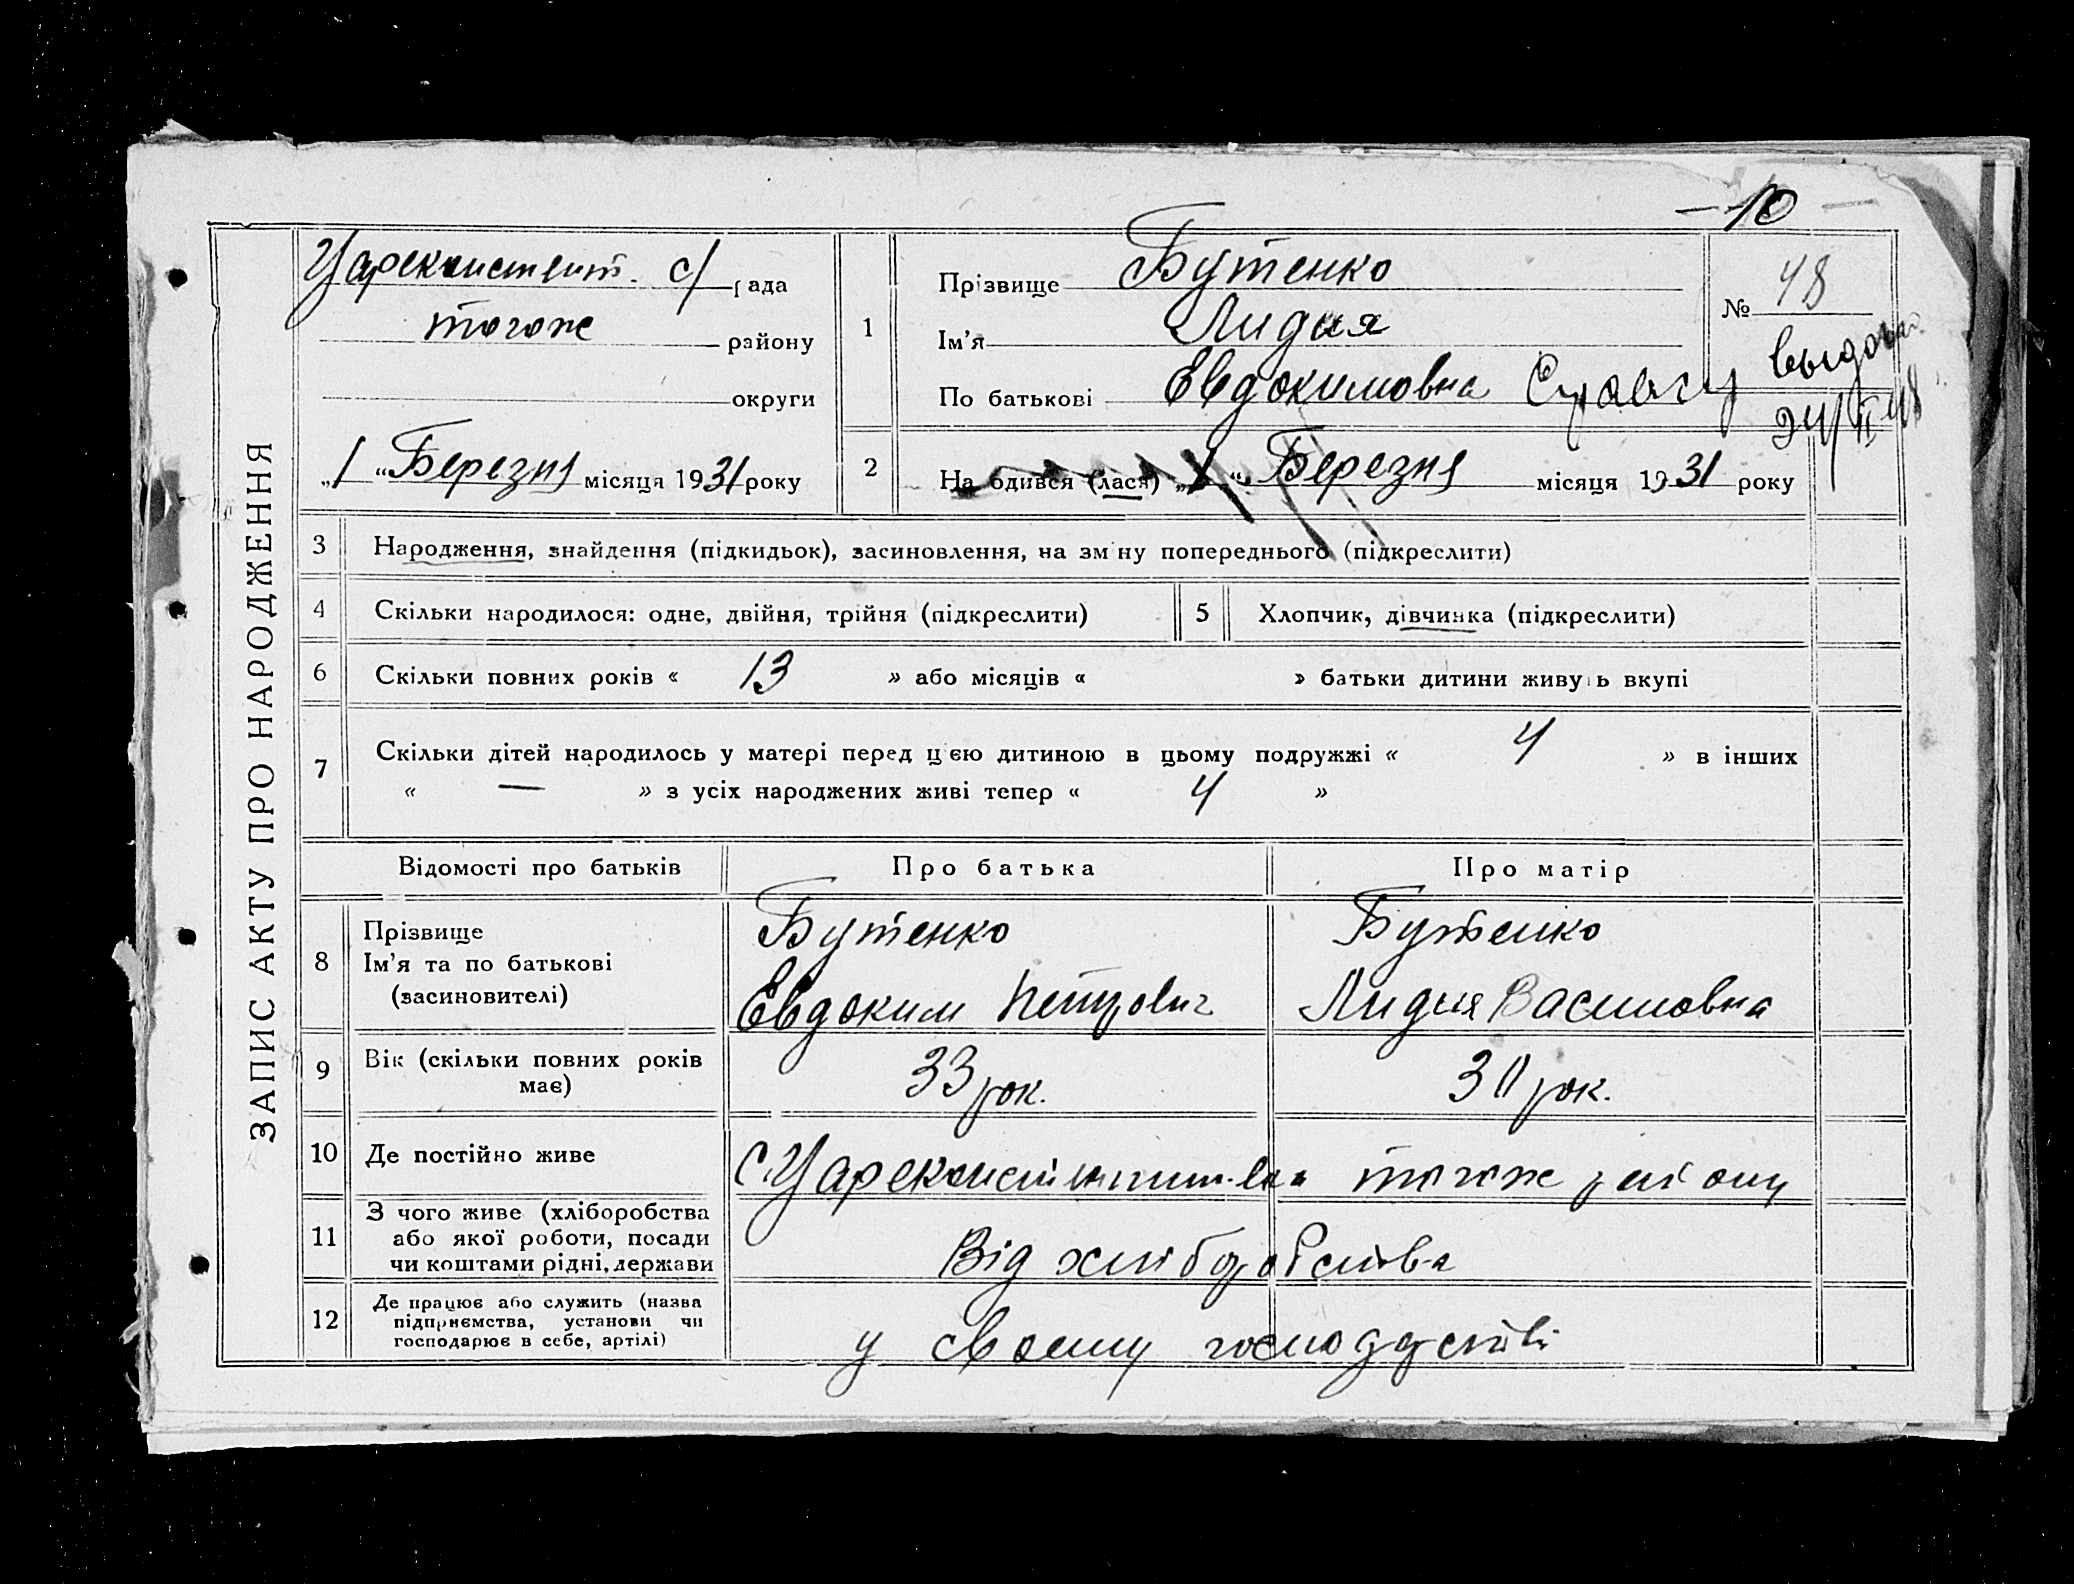 10
ЗАПИС АКТУ ПРО НАРОДЖЕННЯ
Цареконстент. с/рада
тогоже району
округи
„1“ Березня місяця 1931 року
1
Прізвище Бутенко
Ім'я Лидия
По батькові Евдокимовна
№ 48
Справку выдана
24/II 48
2
На одився (лася) „1“ Березня місяця 1931 року
3 Народження, знайдення (підкидьок), засиновлення, на зміну попереднього (підкреслити)
4 Скільки народилося: одне, двійня, трійня (підкреслити)
5 Хлопчик, дівчинка (підкреслити)
6 Скільки повних років « 13 » або місяців « » батьки дитини живуть вкупі
7 Скільки дітей народилось у матері перед цією дитиною в цьому подружжі « 4 » в інших
« — » з усіх народжених живі тепер « 4 »
Відомості про батьків Про батька Про матір
8 Прізвище
Ім'я та по батькові
(засиновителі)
Бутенко
Евдоким Петрович
Бутенко
Лидия Василовна
9 Вік (скільки повних років
має)
33 рок.
30 рок.
10 Де постійно живе
с. тогоже району
11 З чого живе (хліборобства
або якої роботи, посади
чи коштами рідні, держави
Від хліборобства
12 Де працює або служить (назва
підприємства, установи чи
господарює в себе, артілі)
у своему господарстві